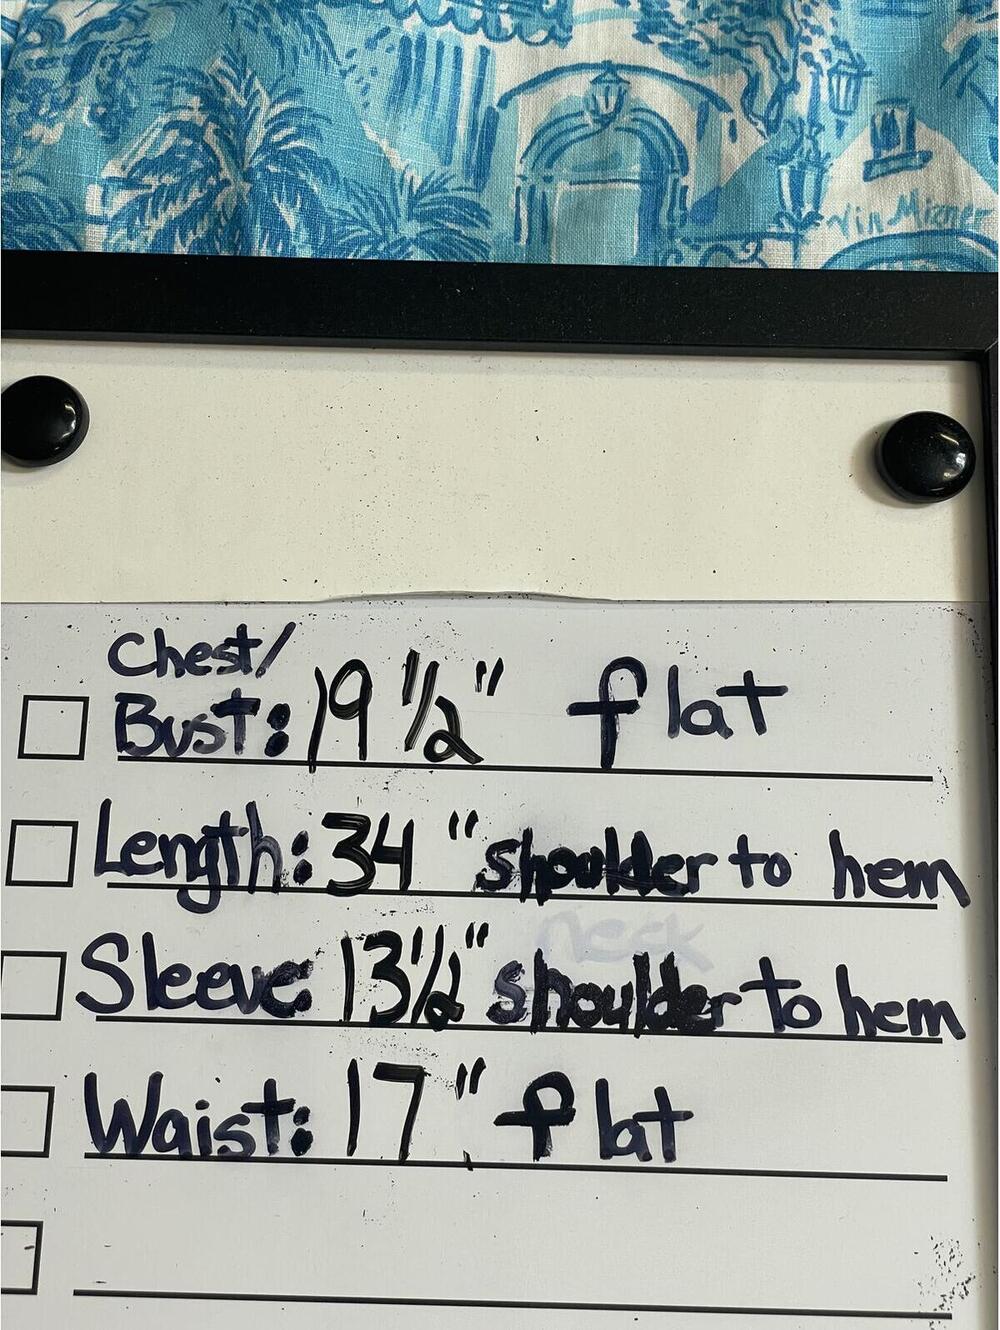 Via Mizner
Chest/
Bust: 19 1/2" flat
Length: 34" shoulder to hem
neck
Sleeve: 13 1/2" shoulder to hem
Waist: 17" flat